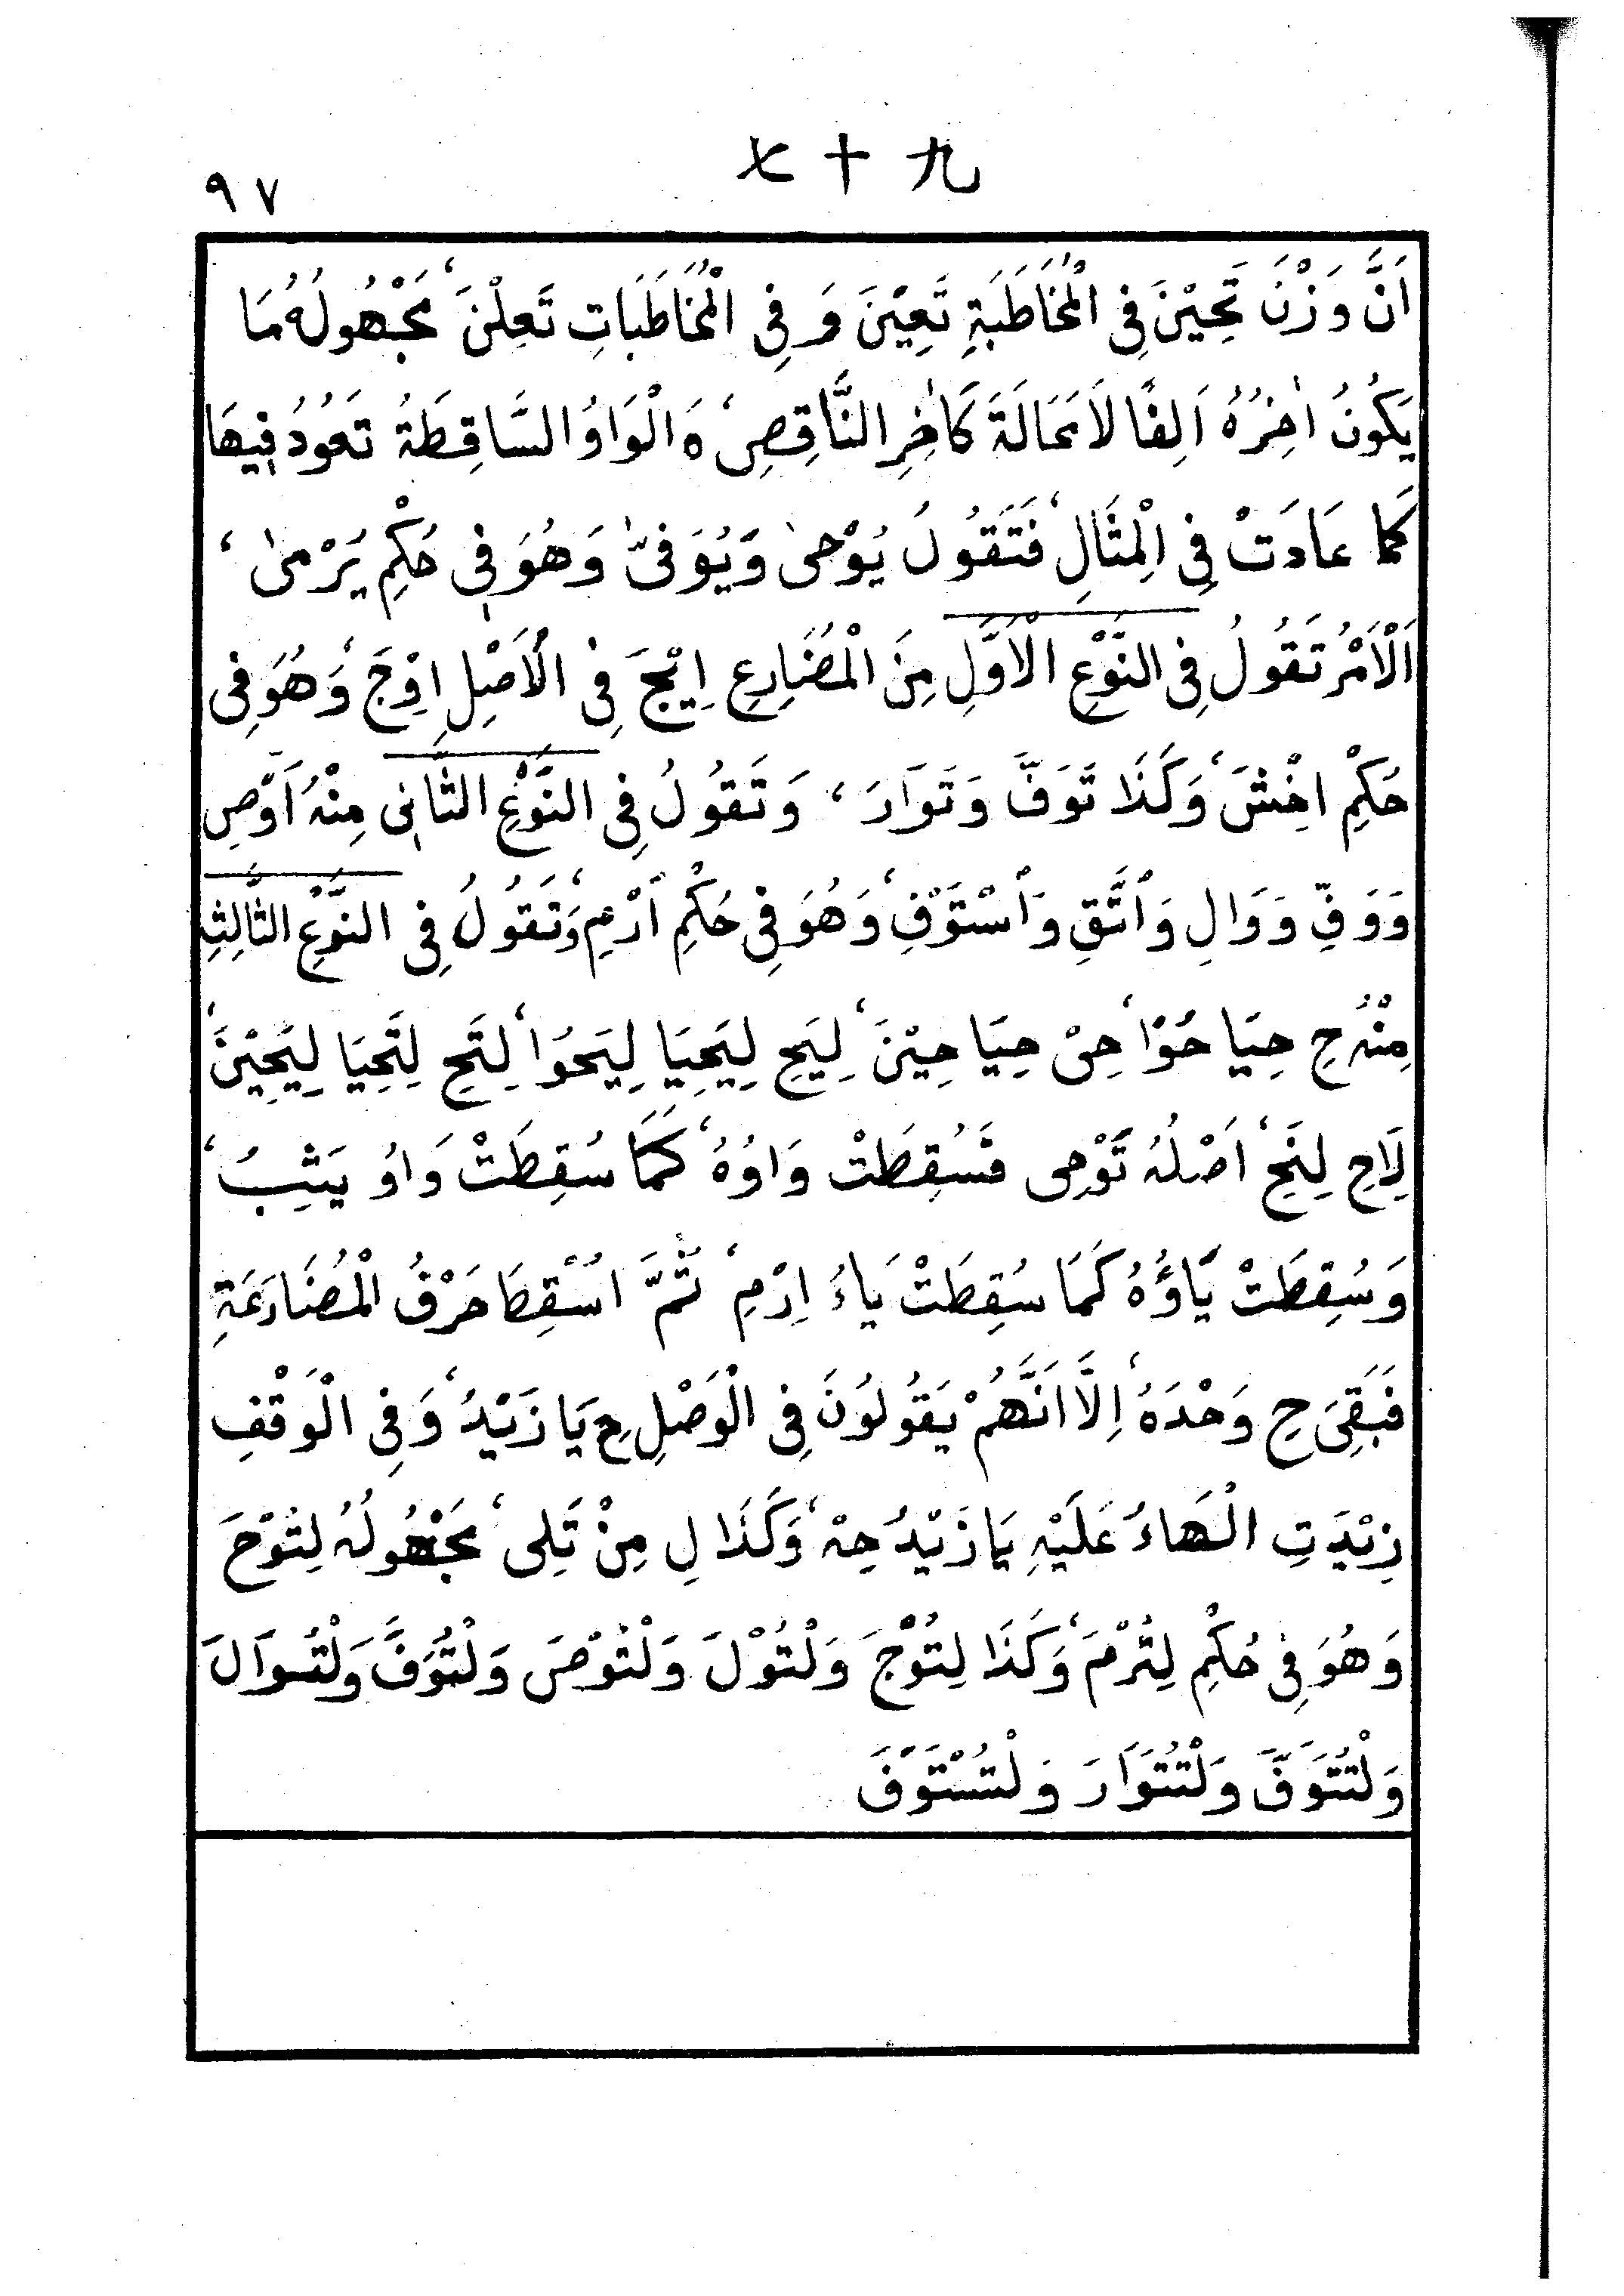 七十九
٩٧
اَنَّ وَزْنَ تَحِيْنَ فِى الْمُخَاطَبَةِ تَعِيْنَ وَفِى الْمُخَاطَبَاتِ تَعِلْنَ، مَجْهُولُهُ مَا
يَكُونُ اٰخِرُهُ اَلِفًا لَا مَحَالَةَ كَاٰخِرِ النَّاقِصِ، وَالْوَاوُ السَّاقِطَةُ تَعُودُ فِيهَا
كَمَا عَادَتْ فِى الْمِثَالِ، فَتَقُولُ يُوْحىٰ وَيُوَفىّٰ وَهُوَ فِى حُكْمِ يُرْمىٰ،
اَلْاَمْرُ تَقُولُ فِى النَّوْعِ الْاَوَّلِ مِنَ الْمُضَارِعِ اِيْجَ فِى الْاَصْلِ اِوْجَ، وَهُوَ فِى
حُكْمِ اخْشَ، وَكَذَا تَوَفَّ وَتَوَارَ، وَتَقُولُ فِى النَّوْعِ الثَّانِى مِنْهُ اَوْصِ
وَوَفِّ وَوَالِ وَاتَّقِ وَاسْتَوْفِ، وَهُوَ فِى حُكْمِ اَرْمِ، وَتَقُولُ فِى النَّوْعِ الثَّالِثِ
مِنْهُ حِ حِيَا حُوْا، حِىْ حِيَا حِيْنَ، لِيَحِ لِيَحِيَا لِيَحُوا، لِتَحِ لِتَحِيَا لِيَحِيْنَ،
لِاَحِ لِنَحِ، اَصْلُهُ تَوْحِى فَسُقِطَتْ وَاوُهُ، كَمَا سُقِطَتْ وَاوُ يَثِبُ،
وَسُقِطَتْ يَاؤُهُ كَمَا سُقِطَتْ يَاءُ اِرْمِ، ثُمَّ اُسْقِطَ حَرْفُ الْمُضَارَعَةِ
فَبَقِىَ حِ وَحْدَهُ، اِلَّا اَنَّهُمْ يَقُولُونَ فِى الْوَصْلِ حِ يَا زَيْدُ، وَفِى الْوَقْفِ
زِيْدَتِ الْهَاءُ عَلَيْهِ يَا زَيْدُ حِهْ، وَكَذَا لِ مِنْ تَلِى، مَجْهُولُهُ لِتُوْحَ
وَهُوَ فِى حُكْمِ لِتُرْمَ، وَكَذَا لِتُوْجَ وَلْتُوْلَ وَلْتُوْصَ وَلْتُوَفَّ وَلْتُوَالَ
وَلْتُتَوَفَّ وَلْتُتَوَارَ وَلْتُسْتَوْفَ